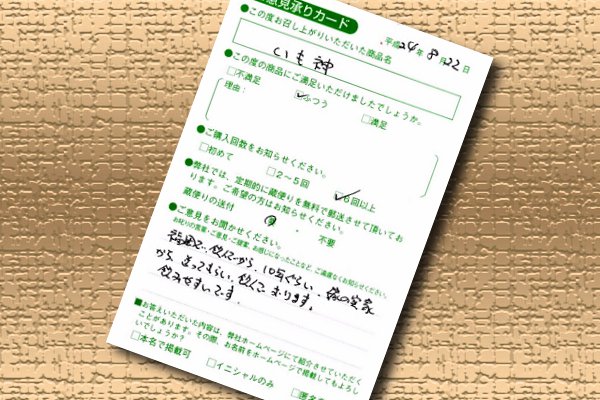 意見承りカード
平成24年8月22日
●この度お召し上がりいただいた商品名
いも神
●この度の商品にご満足いただけましたでしょうか。
□不満足 ☑ふつう □満足
理由:
●ご購入回数をお知らせください。
□初めて □2～5回 ☑6回以上
●弊社では、定期的に蔵便りを無料で郵送させて頂いてお
ります。ご希望の方はお知らせください。
蔵便りの送付 ・ 不要
●ご意見をお聞かせください。
お叱りの言葉・ご意見・ご提案、お感じになったことなど、ご遠慮なくお知らせください。
福岡で飲んでから、10年ぐらい、嫁の実家
から、送ってもらい、飲んでおります。
飲みやすいです。
■お答えいただいた内容は、弊社ホームページにて紹介させていただく
ことがあります。その際、お名前をホームページで掲載してもよろし
いでしょうか?
□本名で掲載可 □イニシャルのみ □匿名